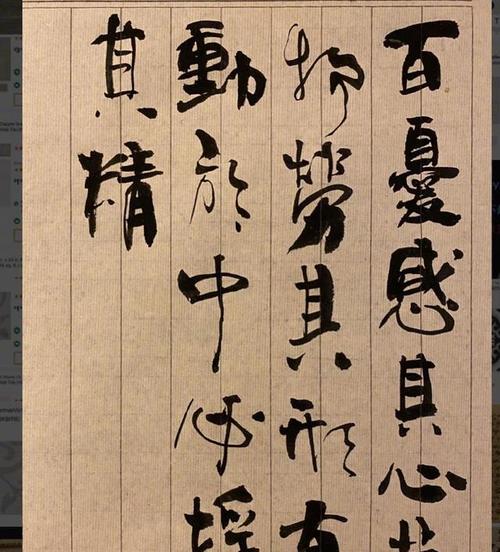 百憂感其心
物勞其形有
動於中必搖
其精